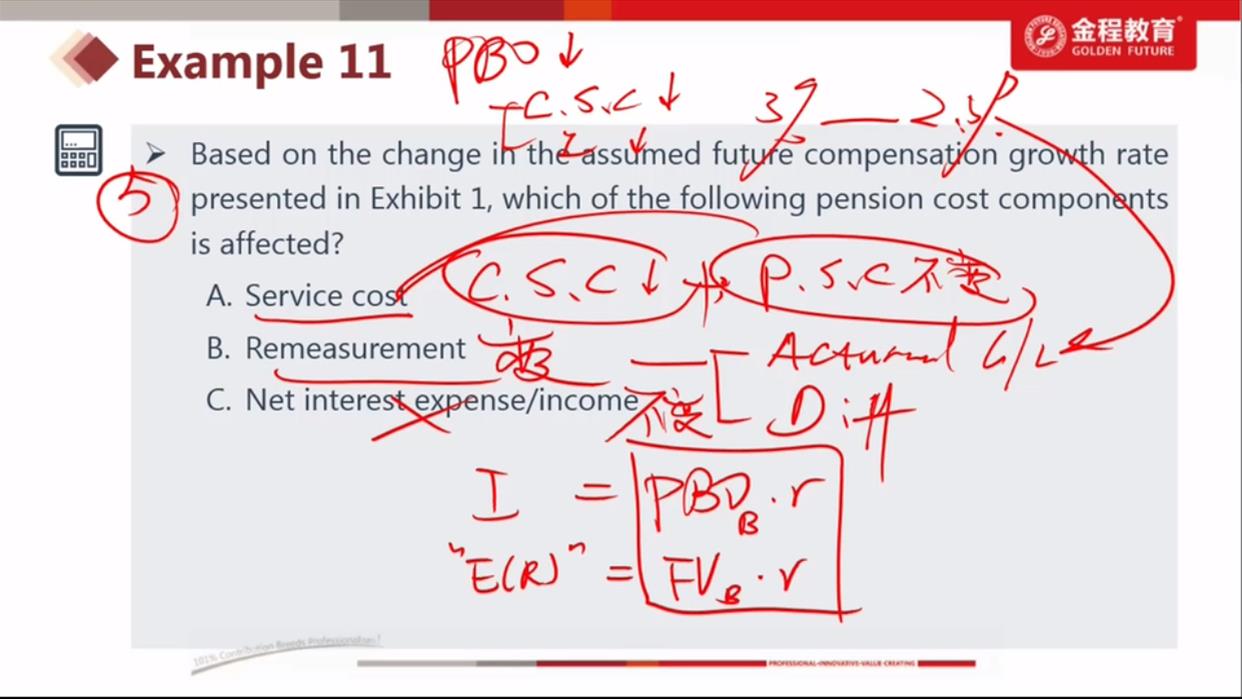 金程教育
GOLDEN FUTURE
Example 11
PBO ↓
C.S.C ↓
I ↓
3% — 2.5%
➤ Based on the change in the assumed future compensation growth rate
5
presented in Exhibit 1, which of the following pension cost components
is affected?
A. Service cost
C.S.C ↓ P.S.C 不变
B. Remeasurement 变
Actuarial G/L
C. Net interest expense/income
不变 Diff
I = PBO_B · r
"E(R)" = FV_B · r
101% Contribution Breeds Professionalism!
PROFESSIONAL·INNOVATIVE·VALUE CREATING